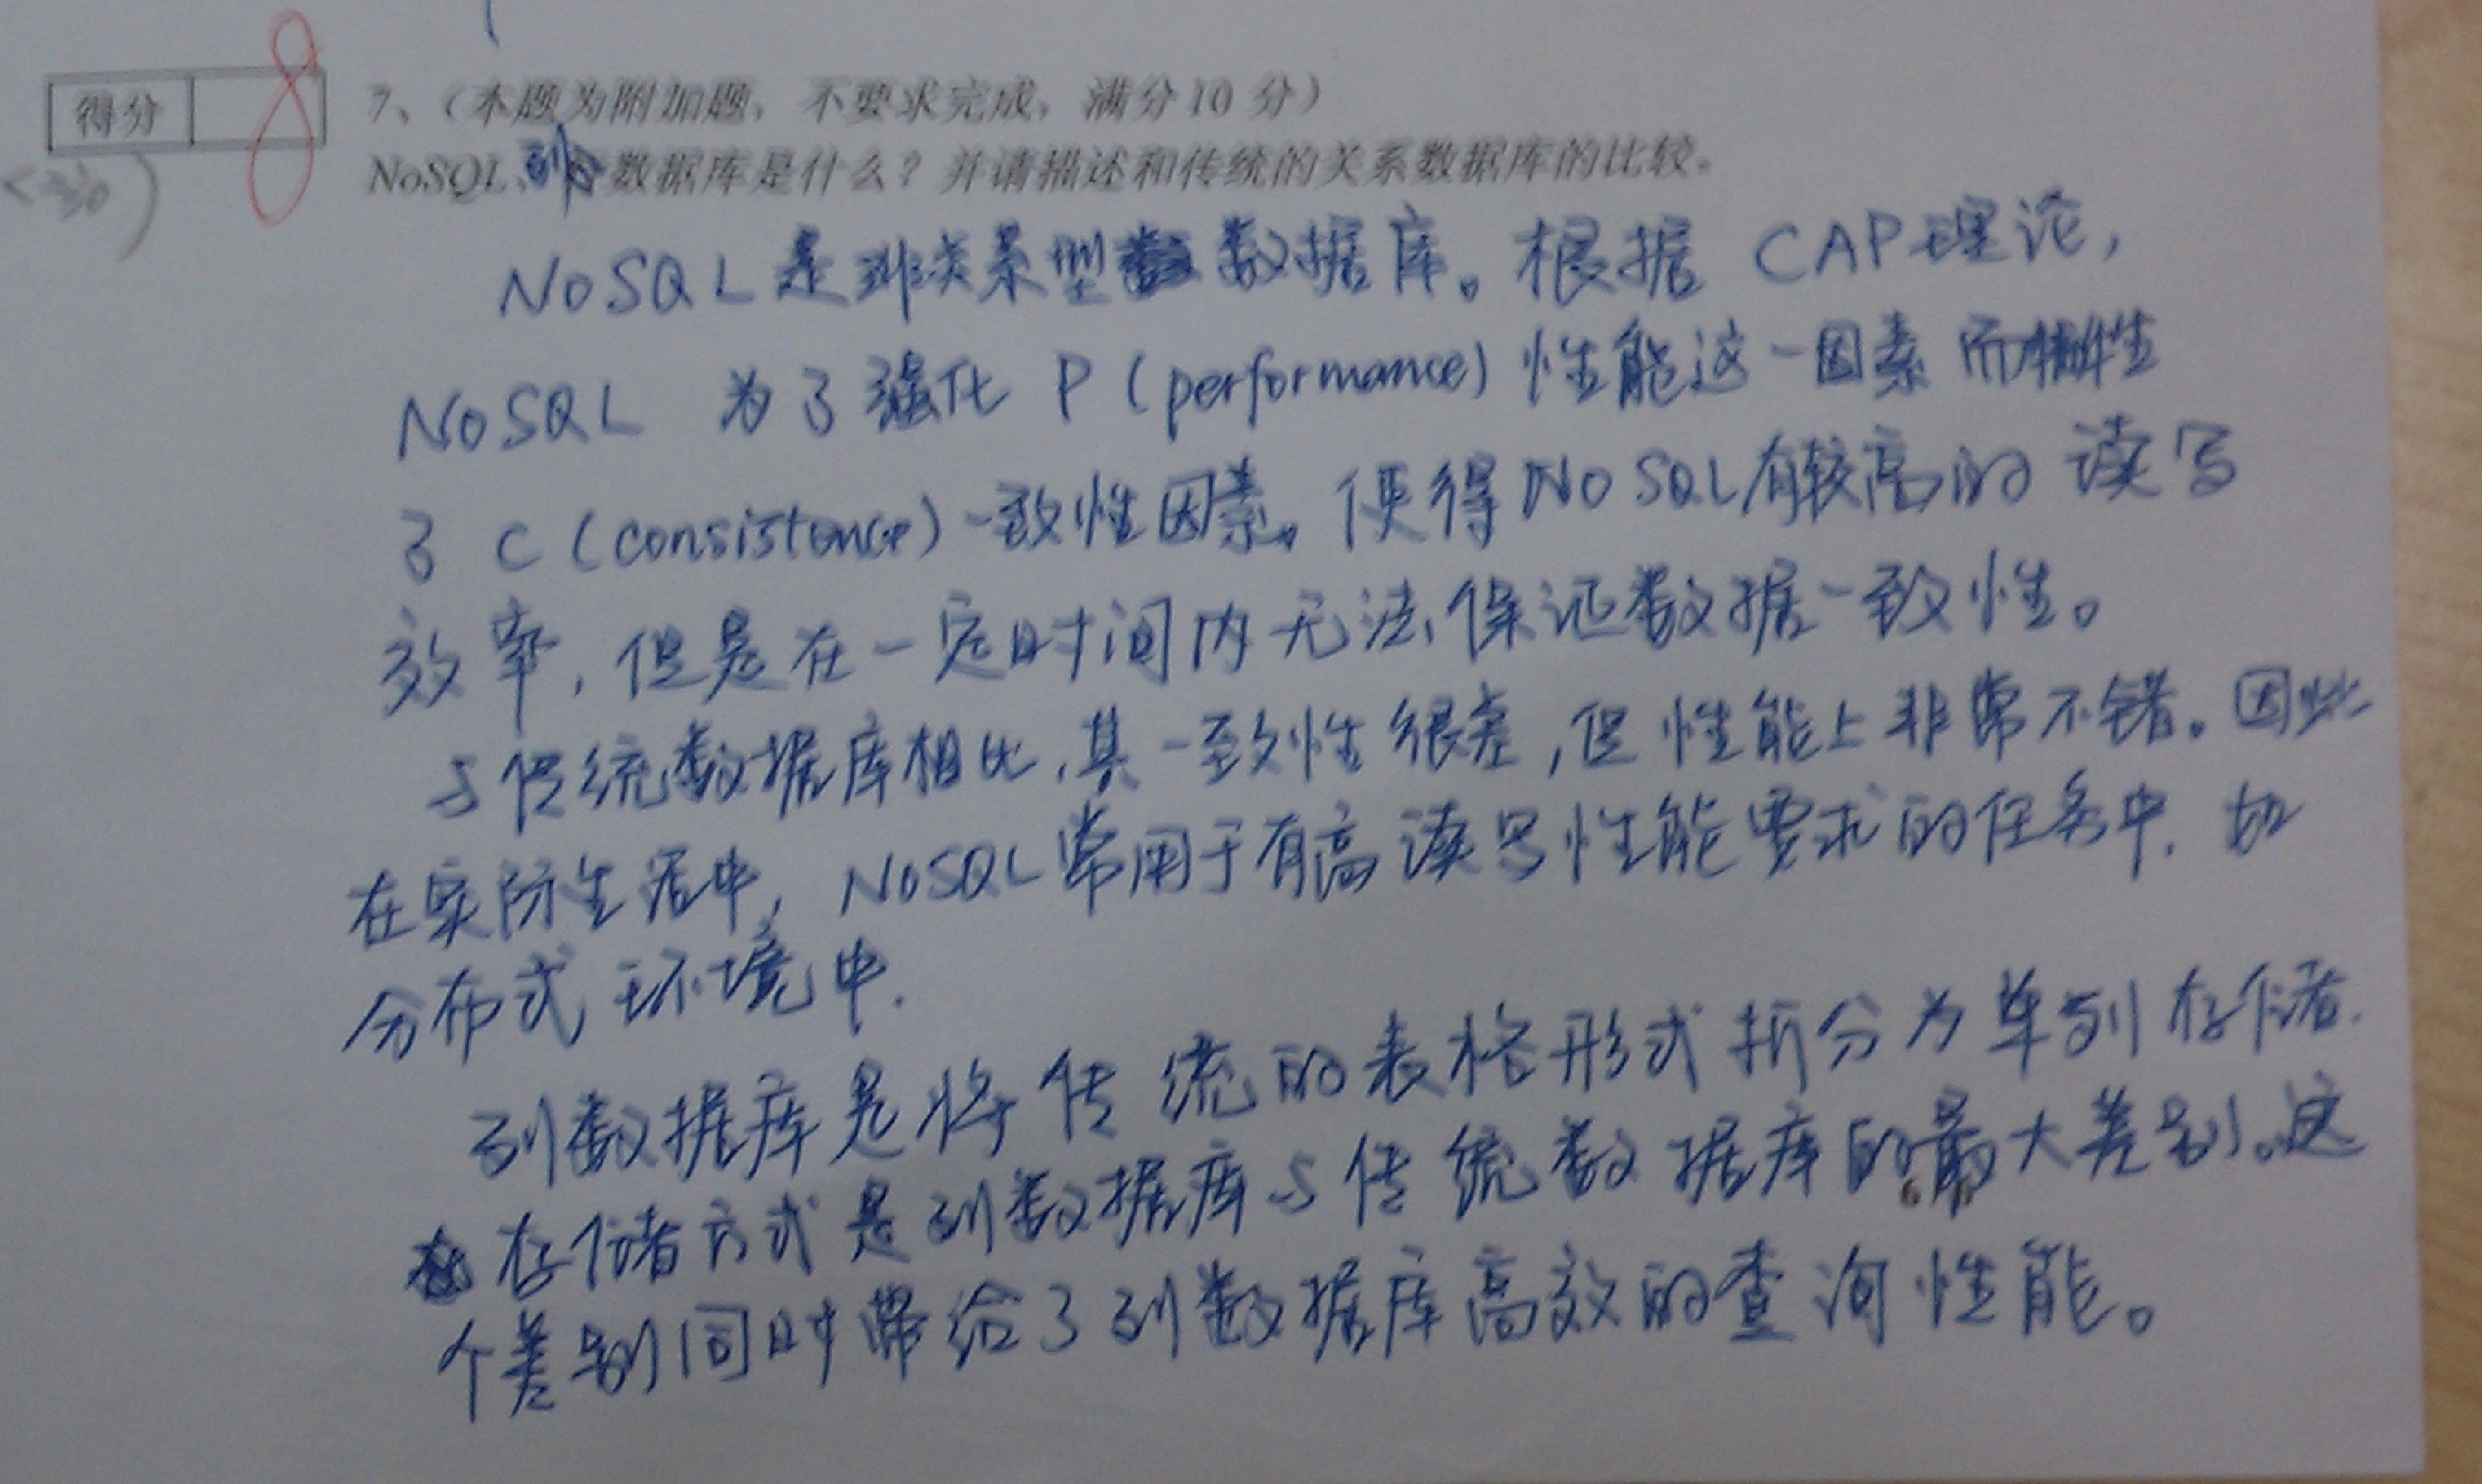 得分 8
7、(本题为附加题，不要求完成，满分10 分)
NoSQL、列数据库是什么？并请描述和传统的关系数据库的比较。
NoSQL是非关系型数据库。根据 CAP理论,
NoSQL 为了强化 P (performance) 性能这一因素而牺牲
了 C (consistence) 一致性因素。使得NoSQL有较高的 读写
效率, 但是在一定时间内无法保证数据一致性。
与传统数据库相比,其一致性很差,但性能上非常不错。因此
在实际生活中, NoSQL常用于有高读写性能要求的任务中. 如
分布式环境中.
列数据库是将传统的表格形式拆分为单列存储.
存储方式是列数据库与传统数据库的最大差别。这
个差别同时带给了列数据库高效的查询性能。